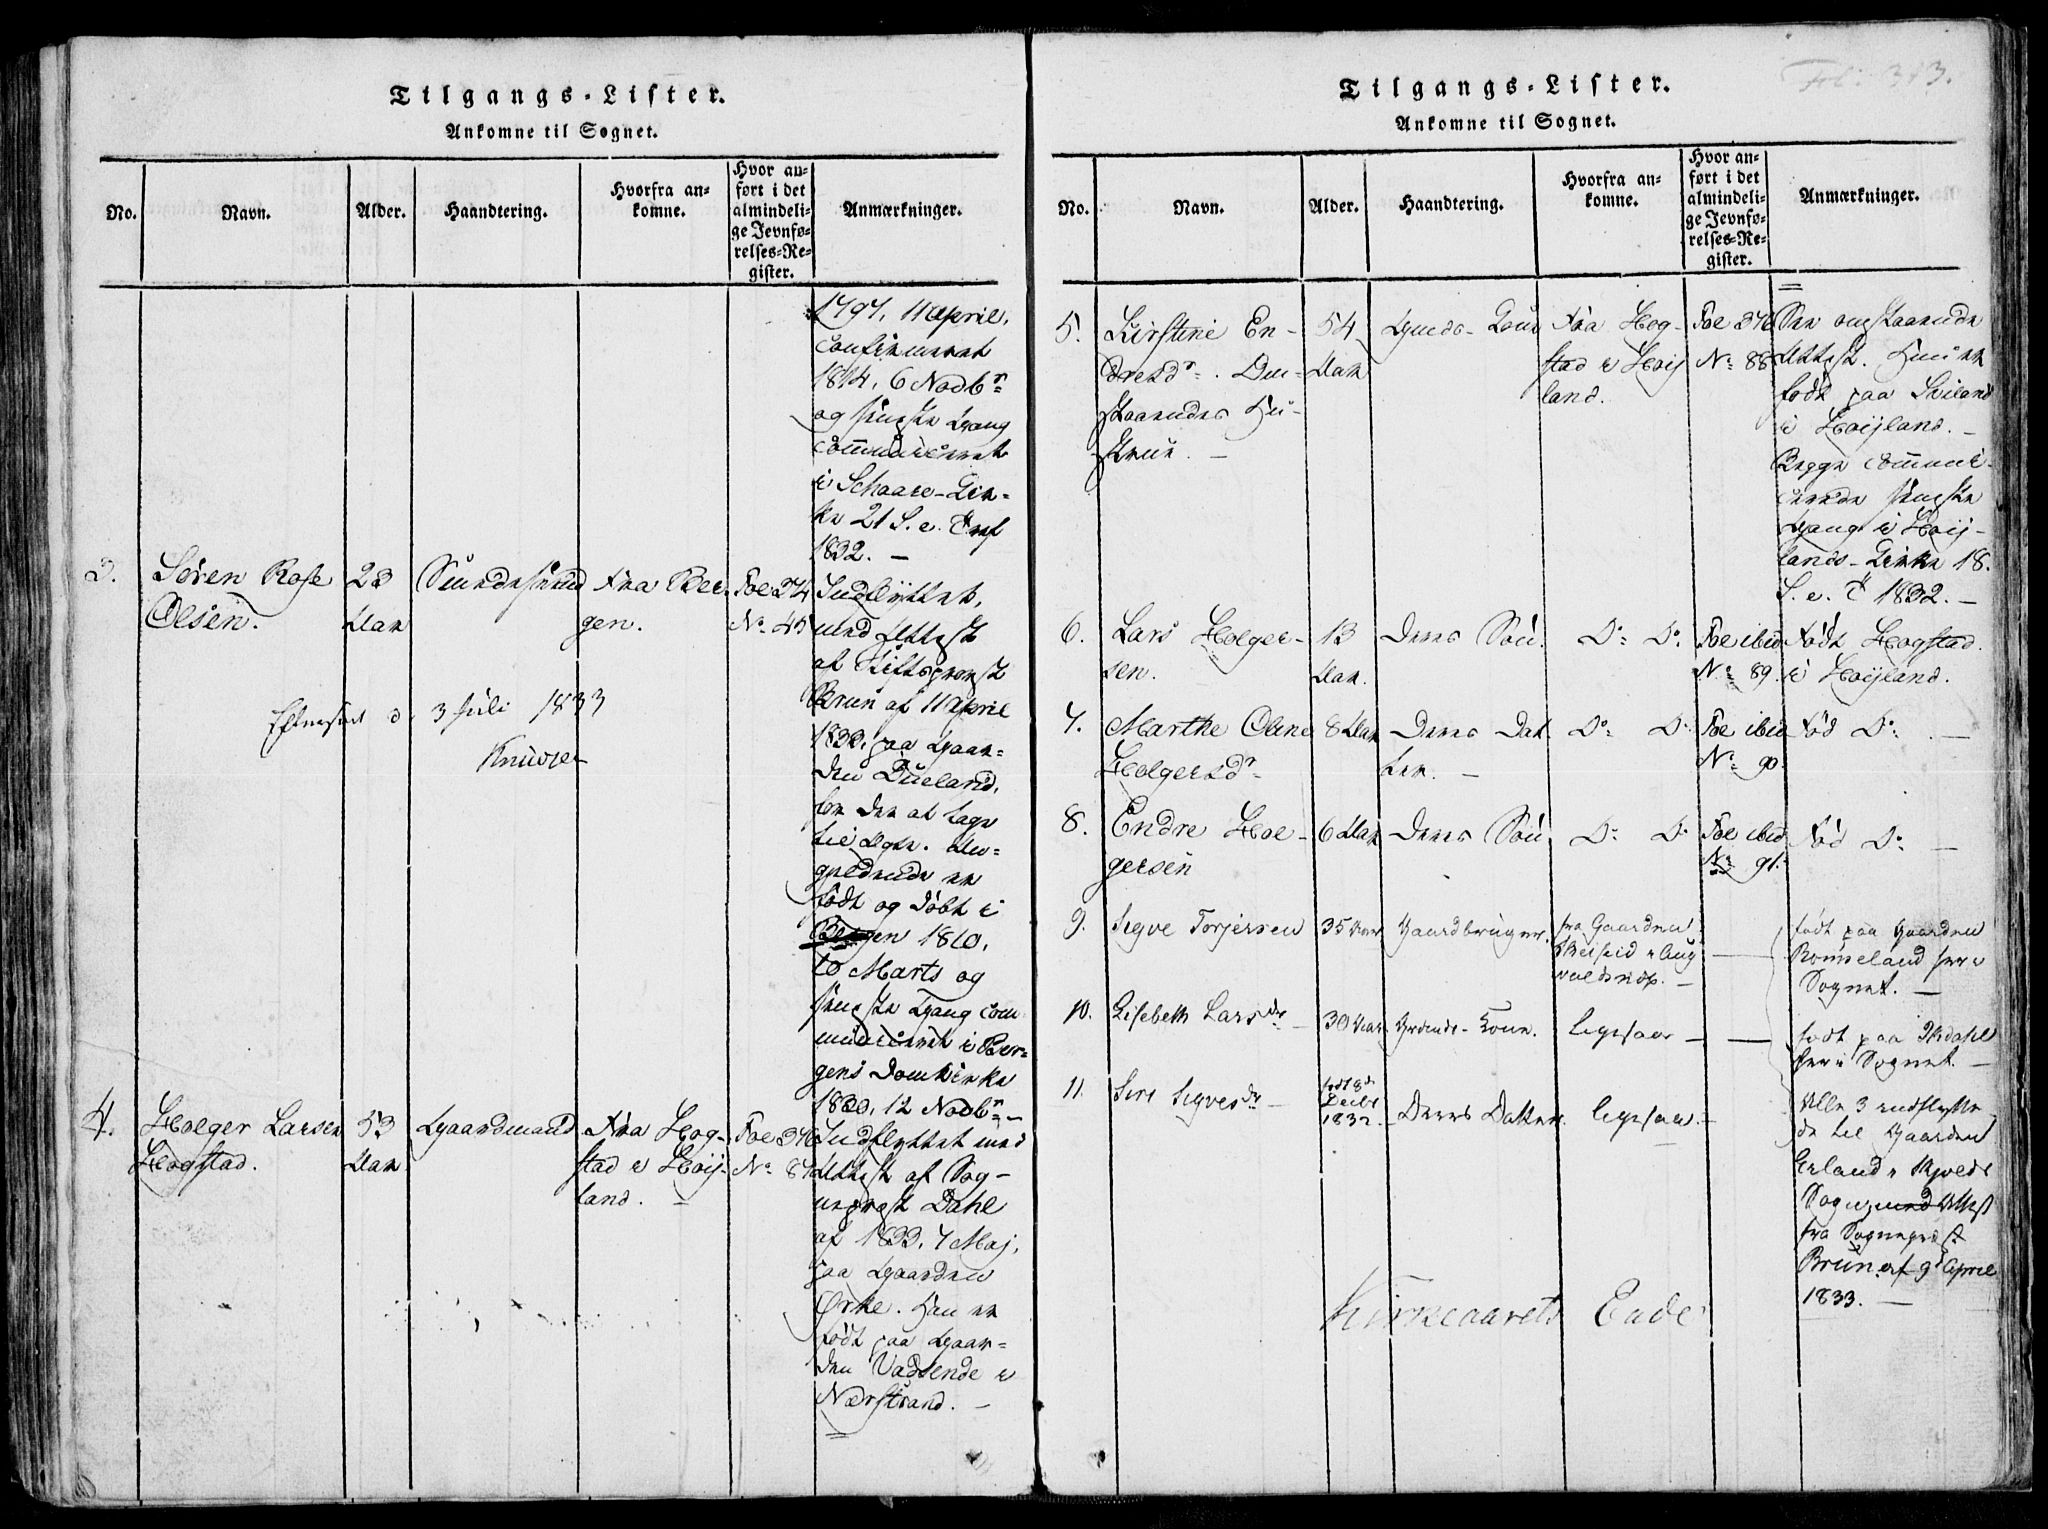 Tilgangs-Lister.
Ankomne til Sognet.
No.
Navn.
Alder.
Haandtering.
Hvorfra an-
komne.
Hvor an-
ført i det
almindeli-
ge Jevnfø-
relses-Re-
gister.
Anmærkninger.
1797, 11 April,
confirmeret
1814, 6 Novbr
og sidste Gang
communiceret
i Schaare-Kir-
ke 21 S. e. Tref
1832. —
3.
Søren Rose
Olsen.
23
Aar
fra Ber-
gen.
Fol 374
No. 45
Indflyttet,
med Attest
af Stiftsprovst
Brun af 11 April
1833, paa Gaar-
den Dueland,
født og døbt i
Bergen 1810,
10 Marts og
sidste Gang com
municeret i Ber-
gens Domkirke
1830, 12 Novbr —
3 Juli 1833
Knudsen
4.
Holger Larsen
Hogstad.
53
Aar
Gaardmand
Fra Hog-
stad i Høij-
land. —
Fol 376
No. 87
Indflyttet med
Attest af Sog-
neprest Dahl
af 1833, 7 Maj,
paa Gaarden
Ørke. Han er
født paa Gaar-
den Vadsende i
Nærstrand. —
Tilgangs-Lister.
Ankomne til Sognet.
Fol: 373.
No.
Navn.
Alder.
Haandtering.
Hvorfra an-
komne.
Hvor an-
ført i det
almindeli-
ge Jevnfø-
relses-Re-
gister.
Anmærkninger.
5.
Kirstine En-
dresdr. Om-
staaendes Hu-
strue. —
54
Aar
Gmds-Kone
Fra Hog-
stad i Høij
land.
Fol 376
No. 88
See omstaaende
Attest. Hun er
født paa Sviland
i Høijland. —
Begge communi-
cerede sidste
Gang i Høij-
lands-Kirke 18.
S. e. T 1832. —
6.
Lars Holger-
sen.
13
Aar.
Deres Søn.
Do Do
Fol ibid
No. 89.
Født Hogstad
i Høijland.
7.
Marthe Oline
Holgersdr
8 Aar
Deres Dat
ter. —
Do Do
Fol ibid
No. 90.
Fød Do —
8.
Endre Hol-
gersen
6 Aar
Deres Søn
Do Do
Fol ibid
No. 91.
Fød Do —
9.
Segve Torjersen
35 Aar
Gaardbruger.
fra Gaarden
født paa Gaarden
Sognet. —
10.
Lisebeth Larsdr
30 Aar
Kone.
ligesaa —
født paa
her i Sognet. —
11.
Siri Segvesdr —
født 8de
Decbr
1832.
Deres Datter
ligesaa. —
Alle 3 indflytte
de til Gaarden
Erland i Skjolds
Sogn, med Attest
fra Sogneprest
Brun af 9de April
1833. —
Kirkeaarets Ende